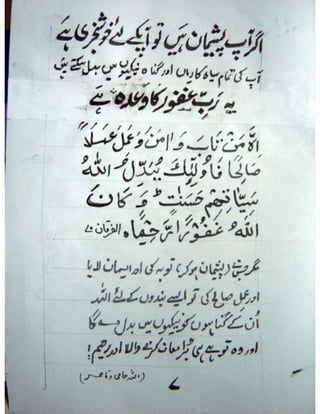 اگر آپ پشیمان ہیں تو آپکے لئے خوشخبری ہے
آپ کی تمام سیاہ کاریاں اور گناہ نیکیوں میں بدل سکتے ہیں
یہ ربِ غفور کا وعدہ ہے
اِلَّا مَنْ تَابَ وَاٰمَنَ وَعَمِلَ عَمَلًا
صَالِحًا فَاُولٰٓئِكَ يُبَدِّلُ اللّٰهُ
سَيِّاٰتِهِمْ حَسَنٰتٍ ط وَكَانَ
اللّٰهُ غَفُوْرًا رَّحِيْمًا ه الفرقان
مگر جس نے (پشیمان ہو کر) توبہ کی اور ایمان لایا
اور عمل صالح کی تو ایسے بندوں کے لئے اللہ
اُن کے گناہوں کو نیکیوں میں بدل دے گا
اور وہ تو ہے ہی بڑا معاف کرنے والا اور رحیم!
(اللہ حامی و ناصر)